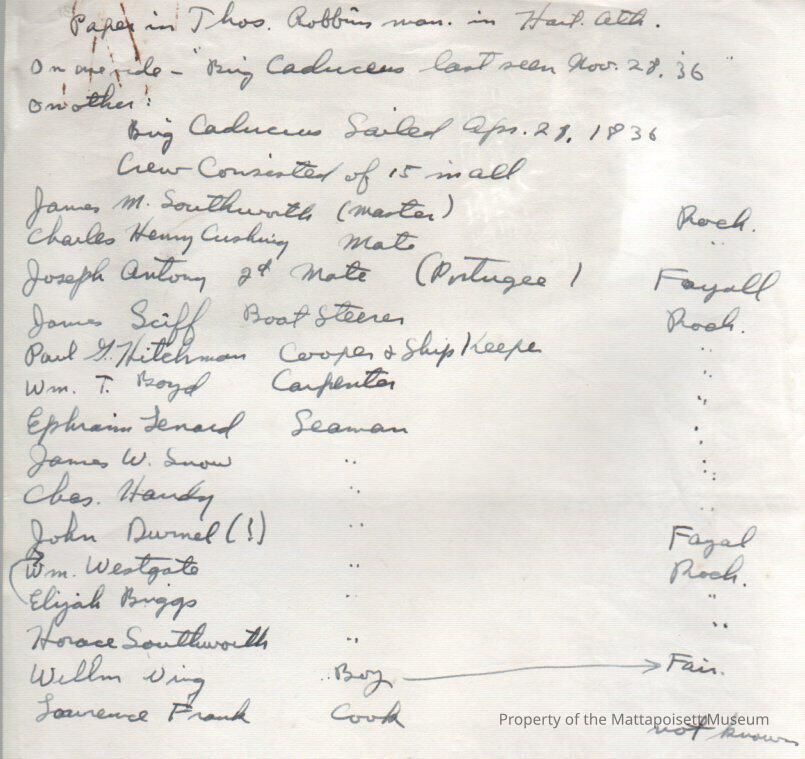 Paper in Thos. Robbins man. in Hart. Ath.
On one side - "Brig Caduceus last seen Nov. 28. '36"
On other:
Brig Caduceus Sailed Apr. 28, 1836
Crew Consisted of 15 in all
James M. Southworth (master) Roch.
Charles Henry Cushing Mate "
Joseph Antony 2d Mate (Portugee) Fayall
James Sciff Boat Steerer Roch.
Paul G. Hitchman Cooper & Ship Keeper "
Wm. T. Boyd Carpenter "
Ephraim Lenard Seaman "
James W. Snow " "
Chas. Handy " "
John Durnel (!) " Fayal
Wm. Westgate " Roch.
Elijah Briggs " "
Horace Southworth " "
Willm Wing Boy Fair.
Lawrence Frank Cook not known
Property of the Mattapoisett Museum